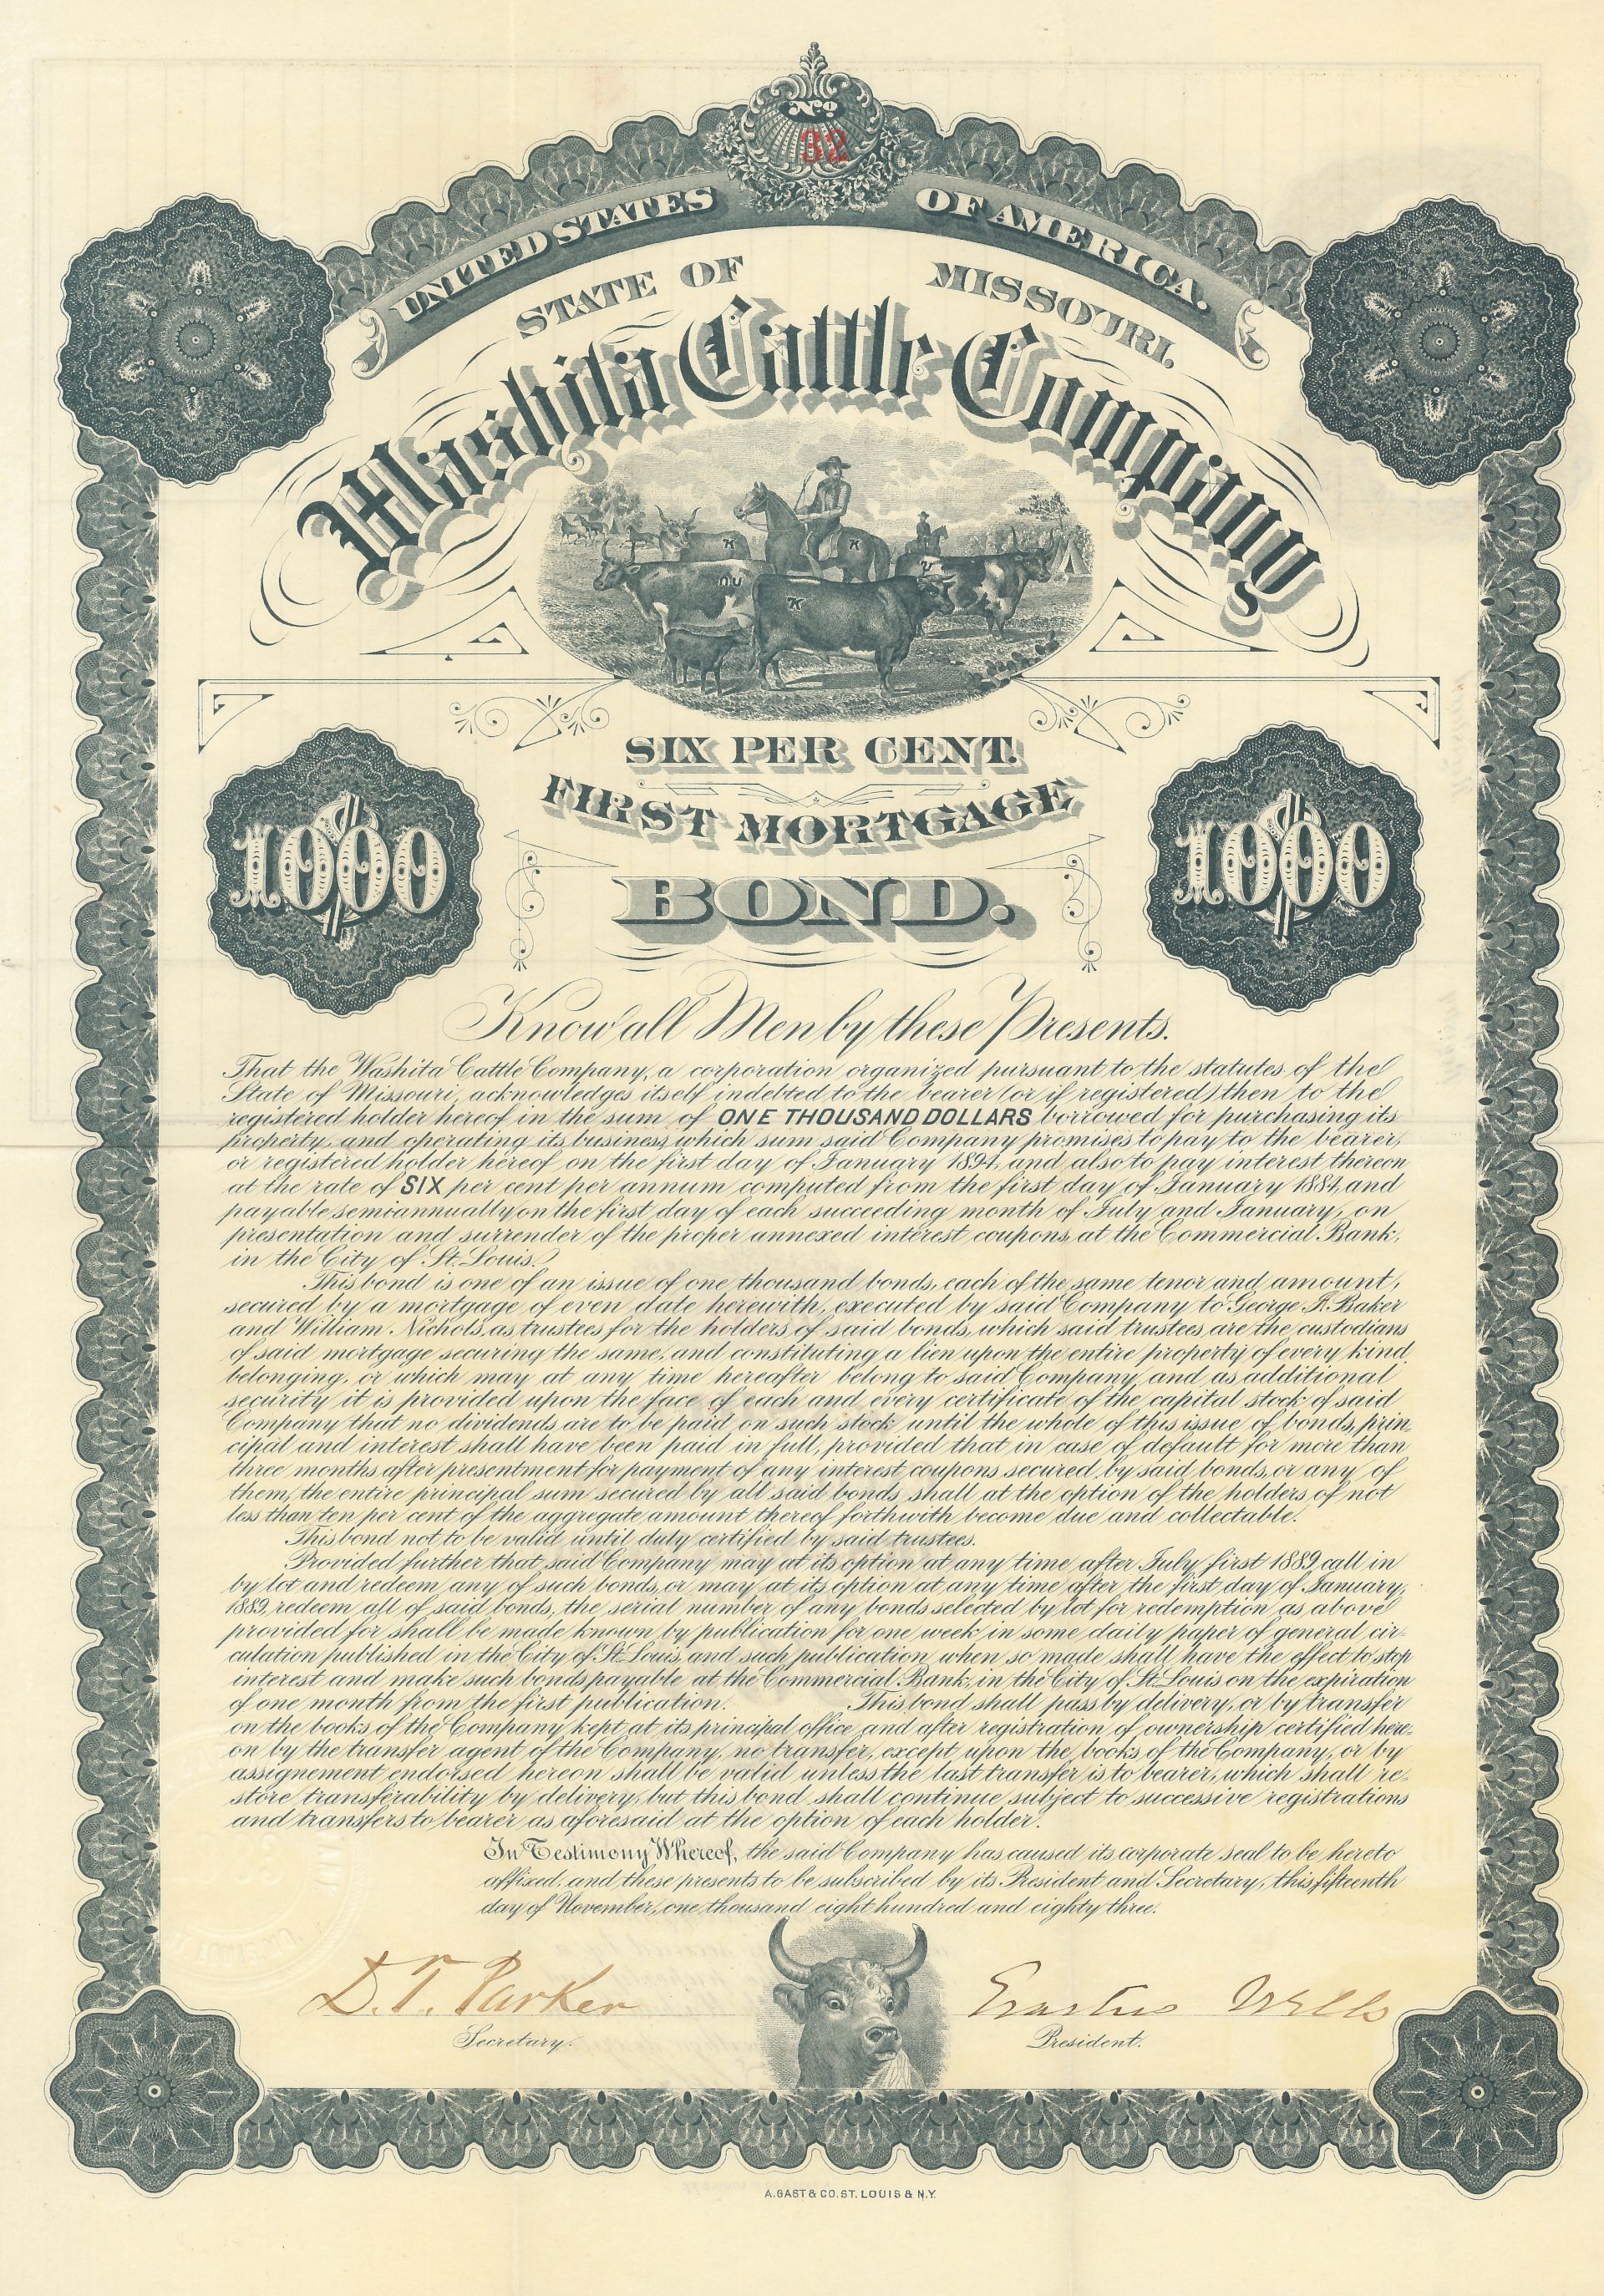 No.
32
UNITED STATES OF AMERICA.
STATE OF MISSOURI.
Washita Cattle Company
SIX PER CENT.
FIRST MORTGAGE
1000 1000
BOND.
Know all Men by these Presents.
That the Washita Cattle Company, a corporation organized pursuant to the statutes of the
State of Missouri, acknowledges itself indebted to the bearer (or if registered) then to the
registered holder hereof in the sum of ONE THOUSAND DOLLARS borrowed for purchasing its
property, and operating its business, which sum said Company promises to pay to the bearer,
or registered holder hereof on the first day of January 1894, and also to pay interest thereon
at the rate of SIX per cent per annum computed from the first day of January 1884, and
payable semiannually on the first day of each succeeding month of July and January, on
presentation and surrender of the proper annexed interest coupons, at the Commercial Bank,
in the City of St. Louis.
This bond is one of an issue of one thousand bonds, each of the same tenor and amount,
secured by a mortgage of even date herewith, executed by said Company to George F. Baker
and William Nichols, as trustees for the holders of said bonds, which said trustees are the custodians
of said mortgage securing the same, and constituting a lien upon the entire property of every kind
belonging, or which may at any time hereafter belong to said Company, and as additional
security it is provided upon the face of each and every certificate of the capital stock of said
Company that no dividends are to be paid on such stock until the whole of this issue of bonds, prin-
cipal and interest shall have been paid in full, provided that in case of default for more than
three months after presentment for payment of any interest coupons secured by said bonds, or any of
them, the entire principal sum secured by all said bonds shall at the option of the holders of not
less than ten per cent of the aggregate amount thereof forthwith become due and collectable.
This bond not to be valid until duly certified by said trustees.
Provided further that said Company may at its option at any time after July first 1889, call in
by lot and redeem any of such bonds, or may at its option at any time after the first day of January,
1889, redeem all of said bonds, the serial number of any bonds selected by lot for redemption as above
provided for shall be made known by publication for one week in some daily paper of general cir-
culation published in the City of St. Louis, and such publication when so made shall have the effect to stop
interest and make such bonds payable at the Commercial Bank, in the City of St. Louis on the expiration
of one month from the first publication. This bond shall pass by delivery, or by transfer
on the books of the Company kept at its principal office and after registration of ownership certified here-
on by the transfer agent of the Company, no transfer, except upon the books of the Company, or by
assignement endorsed hereon shall be valid unless the last transfer is to bearer, which shall re-
store transferability by delivery, but this bond shall continue subject to successive registrations
and transfers to bearer as aforesaid at the option of each holder.
In Testimony Whereof, the said Company has caused its corporate seal to be hereto
affixed, and these presents to be subscribed by its President and Secretary, this fifteenth
day of November, one thousand eight hundred and eighty three.
D. T. Parker Erastus Wells
Secretary. President.
A. GAST & CO. ST. LOUIS & N.Y.